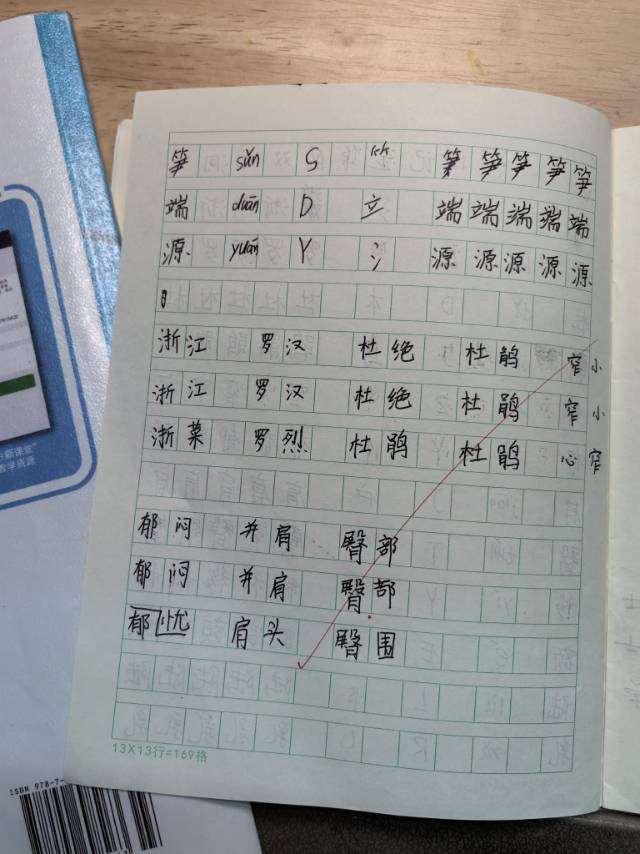 笋 sǔn S ⺮ 笋 笋 笋 笋 笋
端 duān D 立 端 端 端 端 端
源 yuán Y 氵 源 源 源 源 源
浙江 罗汉 杜绝 杜鹃 窄小
浙江 罗汉 杜绝 杜鹃 窄小
浙菜 罗烈 杜鹃 杜鹃 心窄
郁闷 并肩 臀部
郁闷 并肩 臀部
郁忧 肩头 臀围
13X13行=169格
ISBN 978-7-